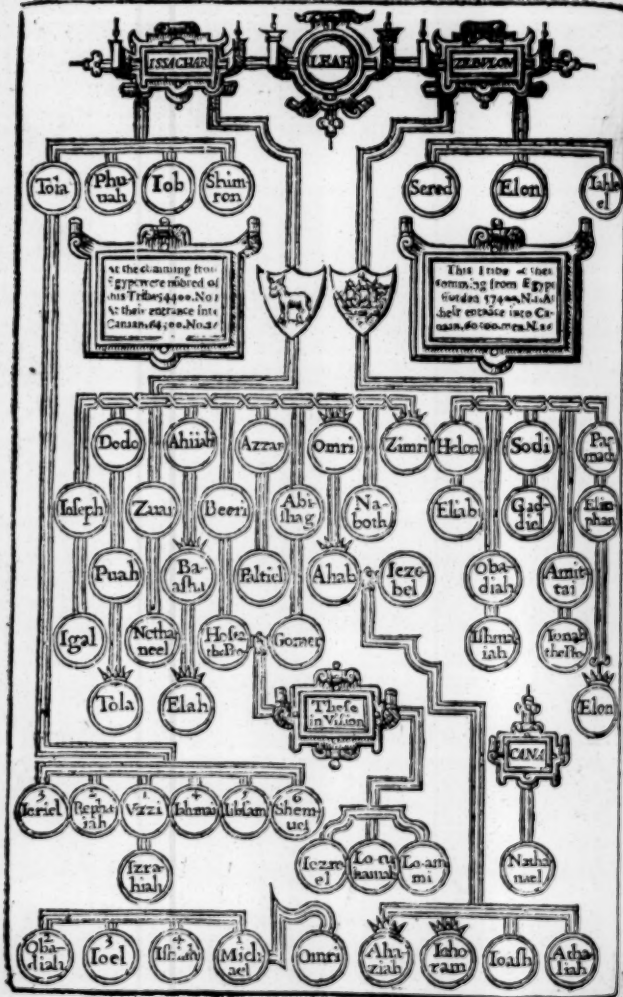 ISSACHAR
LEAH
ZEBULON
Tola
Phu-
uah
Iob
Shim
ron
Sered
Elon
Iahle
el
At the comming from
Egypt were nūbred of
this Tribe 54400. No. 1
At their entrance into
Canaan, 64300. No. 26
This Tribe at their
comming from Egypt
57400. N. 1. At
their entrance into Ca-
naan, 60500. men. N. 26
Dodo
Ahiiah
Azzan
Omri
Zimri
Helon
Sodi
Par
nach
Ioseph
Zuar
Beeri
Abi-
shag
Na-
both
Eliab
Gad-
diel
Eliza
phan
Puah
Ba-
asha
Paltiel
Ahab
Ieze-
bel
Oba-
diah
Amit-
tai
Igal
Netha-
neel
Hosea
the Pro
Gomer
Ishma-
iah
Ionah
the Pro
Tola
Elah
These
in Vision
CANA
Elon
3
Ieriel
2
Repha-
iah
1
Vzzi
4
Iahmai
5
Iibsam
6
Shem-
uel
Izra-
hiah
Iezre-
el
Lo-ru
hamah
Lo-am
mi
Natha-
nael
2
Oba-
diah
3
Ioel
4
Ishiah
1
Mich-
ael
Omri
Aha-
ziah
Ieho-
ram
Ioash
Atha-
liah